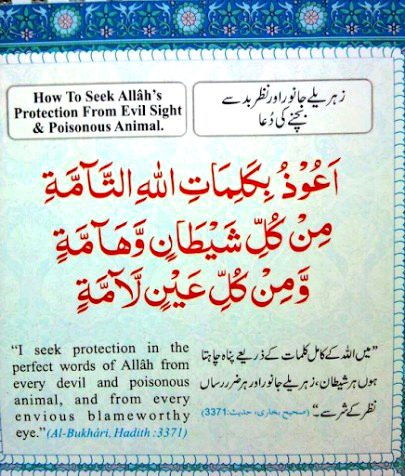 How To Seek Allâh's
Protection From Evil Sight
& Poisonous Animal.
زہریلے جانور اور نظر بد سے
بچنے کی دُعا
اَعُوْذُ بِكَلِمَاتِ اللهِ التَّآمَّةِ
مِنْ كُلِّ شَيْطَانٍ وَّهَآمَّةٍ
وَّمِنْ كُلِّ عَيْنٍ لَّآمَّةٍ
"I seek protection in the
perfect words of Allâh from
every devil and poisonous
animal, and from every
envious blameworthy
eye." (Al-Bukhâri, Hadith :3371)
”میں اللہ کے کامل کلمات کے ذریعے پناہ چاہتا
ہوں ہر شیطان، زہریلے جانور اور ہر ضرر رساں
نظر کے شر سے۔“ (صحیح بخاری، حدیث: 3371)